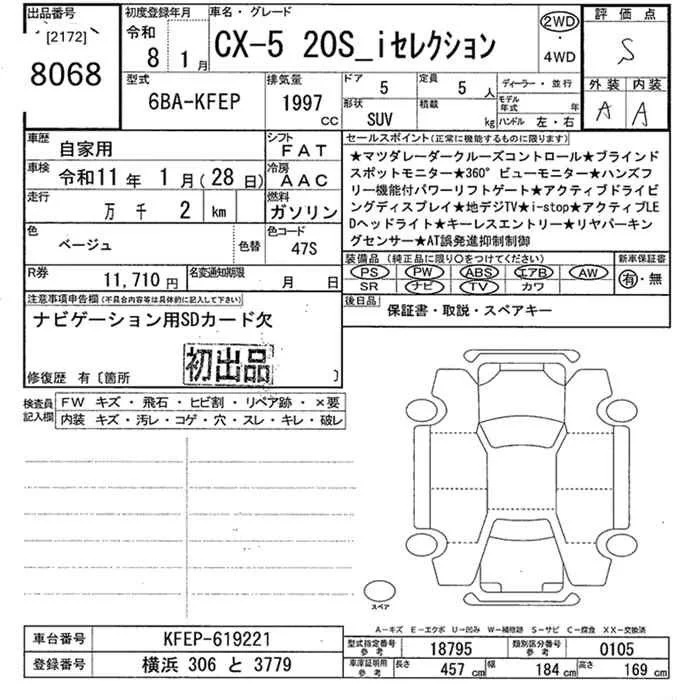 出品番号
[2172]
8068
初度登録年月
令和
8 1月
車名・グレード
CX-5 20S_iセレクション
2WD
・
4WD
評価点
S
外装 内装
A A
型式
6BA-KFEP
排気量
1997
cc
ドア
5
定員
5 人
形状
SUV
積載
kg
ディーラー・並行
モデル年式 年
ハンドル 左・右
車歴
自家用
シフト
FAT
車検
令和11年 1月(28日)
冷房
AAC
走行
万 千 2 km
燃料
ガソリン
色
ベージュ
色替
色コード
47S
R券
11,710円
名変通知期限
月 日
セールスポイント(正常に機能するものに限ります)
★マツダレーダークルーズコントロール★ブラインド
スポットモニター★360°ビューモニター★ハンズフ
リー機能付パワーリフトゲート★アクティブドライビ
ングディスプレイ★地デジTV★i-stop★アクティブLE
Dヘッドライト★キーレスエントリー★リヤパーキン
グセンサー★AT誤発進抑制制御
装備品(純正品に限り○をつけてください)
PS PW ABS エアB AW
SR ナビ TV カワ
新車保証書
有・無
後日品
保証書・取説・スペアキー
注意事項申告欄(不具合内容等は具体的に記入して下さい)
ナビゲーション用SDカード欠
初出品
修復歴 有〔箇所 〕
検査員
記入欄
FW キズ・飛石・ヒビ割・リペア跡・×要
内装 キズ・汚レ・コゲ・穴・スレ・キレ・破レ
スペア
A-キズ E-エクボ U-凹み W-補修跡 S-サビ C-腐食 XX-交換済
車台番号
KFEP-619221
登録番号
横浜 306 と 3779
型式指定番号
参考
18795
類別区分番号
参考
0105
車庫証明用
参考
長さ 457 cm
幅 184 cm
高さ 169 cm